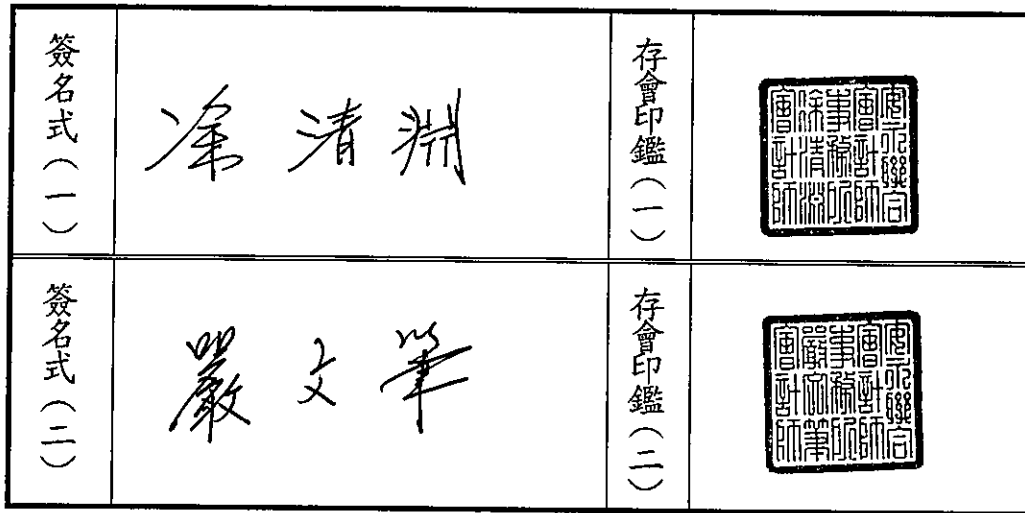 簽名式（一）
涂清淵
存會印鑑（一）
安永聯合會計師事務所涂清淵會計師
簽名式（二）
嚴文筆
存會印鑑（二）
安永聯合會計師事務所嚴文筆會計師